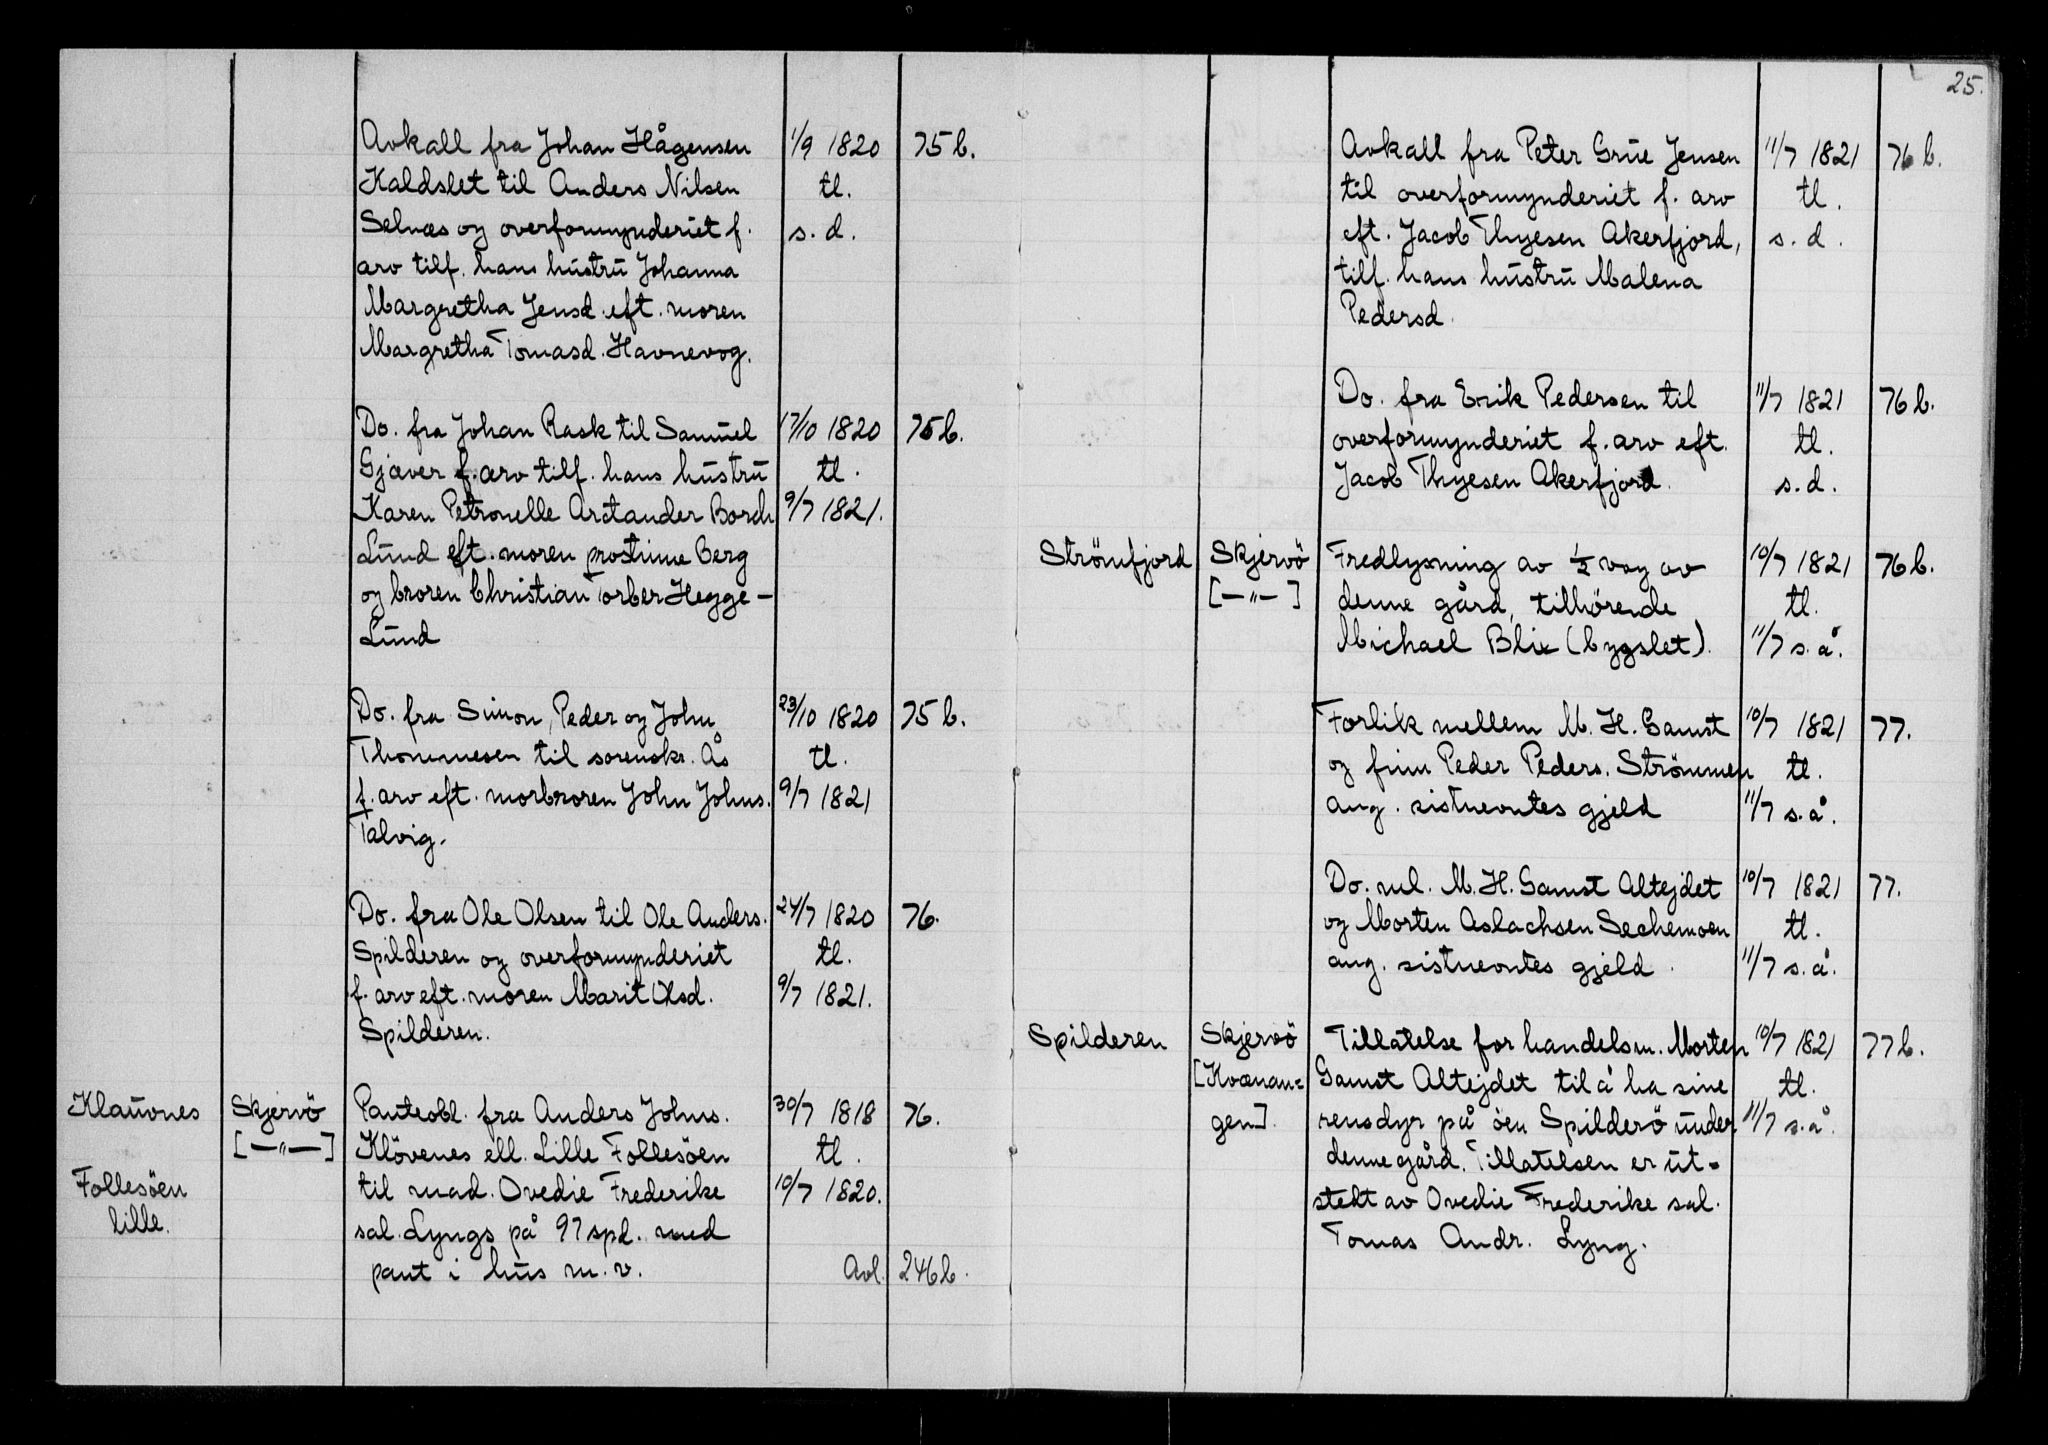 25.
Avkall fra Johan Hågensen 1/9 1820 75 b.
Kaldslet til Anders Nilsen tl.
Selnæs og overformynderiet f. s. d.
arv tilf. hans hustru Johanna
Margretha Jensd. eft. moren
Margretha Tomasd. Havnevog.
Do. fra Johan Rask til Samuel 17/10 1820 75 b.
Gjæver f. arv tilf. hans hustru tl.
Karen Petronelle Arctander Borch 9/7 1821.
Lund eft. moren prostinne Berg
og broren Christian Torber Hegge-
Lund
Do. fra Simon, Peder og John 23/10 1820 75 b.
Thommesen til sorenskr. Ås tl.
f. arv eft. morbroren John Johns. 9/7 1821
Talvig.
Do. fra Ole Olsen til Ole Anders. 24/7 1820 76.
Spilderen og overformynderiet tl.
f. arv eft. moren Marit Olsd. 9/7 1821.
Spilderen.
Klauvnes Skjervö Panteobl. fra Anders Johns. 30/7 1818 76.
[—„—] Klövenes ell. Lille Follesöen tl.
Follesöen til mad. Ovedie Frederike 10/7 1820.
lille. sal. Lyngs på 97 spd. med
pant i hus m. v. Avl. 246 b.
Avkall fra Peter Grue Jensen 11/7 1821 76 b.
til overformynderiet f. arv tl.
eft. Jacob Thyesen Akerfjord, s. d.
tilf. hans hustru Malena
Pedersd.
Do. fra Erik Pedersen til 11/7 1821 76 b.
overformynderiet f. arv eft. tl.
Jacob Thyesen Akerfjord. s. d.
Strömfjord Skjervö Fredlysning av 1/2 vog av 10/7 1821 76 b.
[—„—] denne gård, tilhörende tl.
Michael Blix (bygslet). 11/7 s. å.
Forlik mellem M. H. Gamst 10/7 1821 77.
og finn Peder Peders. Strömmen tl.
ang. sistnevntes gjeld 11/7 s. å.
Do. ml. M. H. Gamst Altejdet 10/7 1821 77.
og Morten Aslachsen Sechemoen tl.
ang. sistnevntes gjeld. 11/7 s. å.
Spilderen Skjervö Tillatelse for handelsm. Morten 10/7 1821 77 b.
[Kvænan= Gamst Altejdet til å ha sine tl.
gen]. rensdyr på öen Spilderö under 11/7 s. å.
denne gård. Tillatelsen er ut-
stedt av Ovedie Frederike sal.
Tomas Andr. Lyng.